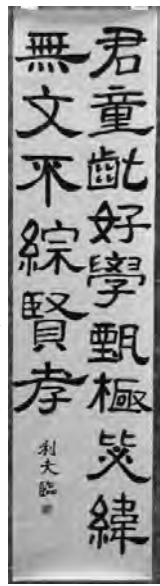 君童齔好學甄極毖緯
無文不綜賢孝
利大臨